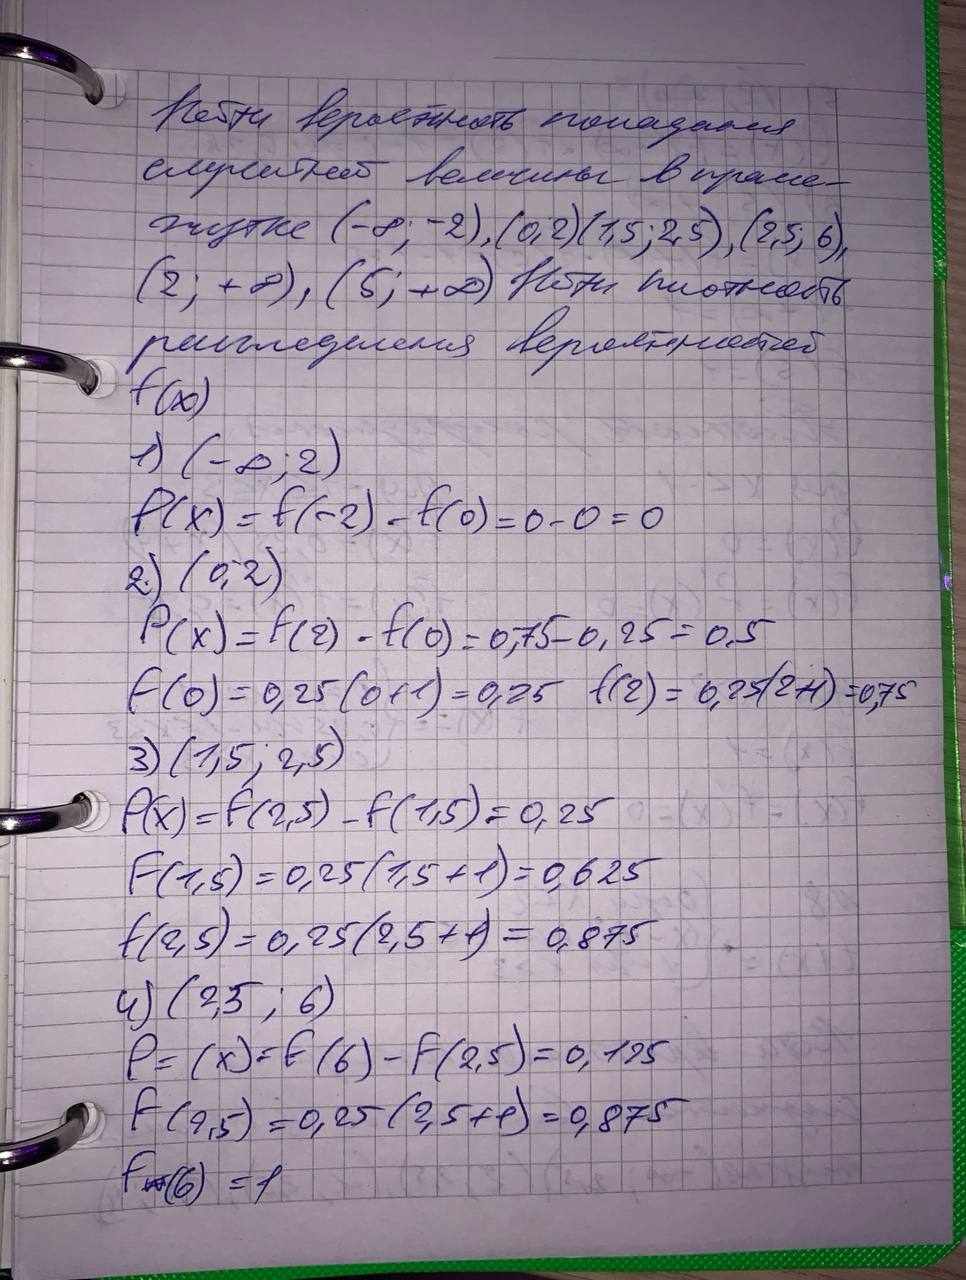 Найти вероятность попадания
случайной величины в проме-
жутке (-∞; -2), (0; 2) (1,5; 2,5), (2,5; 6),
(2; +∞), (5; +∞) Найти плотность
распределения вероятностей
f(x)
1) (-∞; 2)
P(x) = F(-2) - F(0) = 0 - 0 = 0
2) (0; 2)
P(x) = F(2) - F(0) = 0,75 - 0,25 = 0,5
F(0) = 0,25(0+1) = 0,25 F(2) = 0,25(2+1) = 0,75
3) (1,5; 2,5)
P(x) = F(2,5) - F(1,5) = 0,25
F(1,5) = 0,25(1,5+1) = 0,625
F(2,5) = 0,25(2,5+1) = 0,875
4) (2,5; 6)
P = (x) = F(6) - F(2,5) = 0,125
F(2,5) = 0,25(2,5+1) = 0,875
F(6) = 1